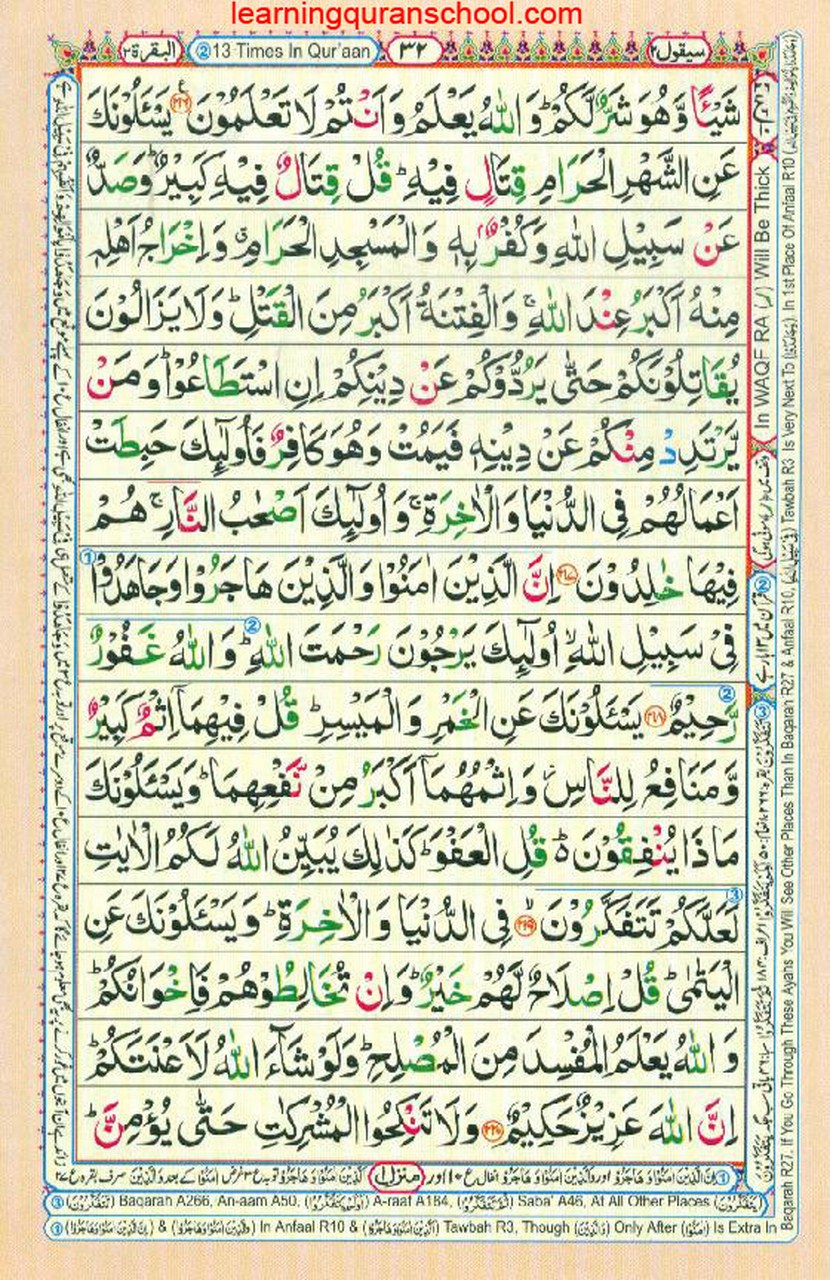 learningquranschool.com
سيقول٢ ٣٢ ②13 Times In Qur'aan البقرة٢
شَيْـًٔا وَّهُوَ شَرٌّ لَّكُمْ ؕ وَاللّٰهُ يَعْلَمُ وَاَنْتُمْ لَا تَعْلَمُوْنَ ﴿۲۱۶﴾ ع يَسْـَٔلُوْنَكَ
عَنِ الشَّهْرِ الْحَرَامِ قِتَالٍ فِيْهِ ؕ قُلْ قِتَالٌ فِيْهِ كَبِيْرٌ ؕ وَصَدٌّ
عَنْ سَبِيْلِ اللّٰهِ وَكُفْرٌۢ بِهٖ وَالْمَسْجِدِ الْحَرَامِ ۗ وَاِخْرَاجُ اَهْلِهٖ
مِنْهُ اَكْبَرُ عِنْدَ اللّٰهِ ۚ وَالْفِتْنَةُ اَكْبَرُ مِنَ الْقَتْلِ ؕ وَلَا يَزَالُوْنَ
يُقَاتِلُوْنَكُمْ حَتّٰى يَرُدُّوْكُمْ عَنْ دِيْنِكُمْ اِنِ اسْتَطَاعُوْا ؕ وَمَنْ
يَّرْتَدِدْ مِنْكُمْ عَنْ دِيْنِهٖ فَيَمُتْ وَهُوَ كَافِرٌ فَاُولٰٓئِكَ حَبِطَتْ
اَعْمَالُهُمْ فِى الدُّنْيَا وَالْاٰخِرَةِ ۚ وَاُولٰٓئِكَ اَصْحٰبُ النَّارِ ۚ هُمْ
فِيْهَا خٰلِدُوْنَ ﴿۲۱۷﴾ اِنَّ الَّذِيْنَ اٰمَنُوْا وَالَّذِيْنَ هَاجَرُوْا وَجَاهَدُوْا ①
فِىْ سَبِيْلِ اللّٰهِ ۙ اُولٰٓئِكَ يَرْجُوْنَ رَحْمَتَ اللّٰهِ ؕ ② وَاللّٰهُ غَفُوْرٌ
رَّحِيْمٌ ② ﴿۲۱۸﴾ يَسْـَٔلُوْنَكَ عَنِ الْخَمْرِ وَالْمَيْسِرِ ؕ قُلْ فِيْهِمَاۤ اِثْمٌ كَبِيْرٌ
وَّمَنَافِعُ لِلنَّاسِ ۫ وَاِثْمُهُمَاۤ اَكْبَرُ مِنْ نَّفْعِهِمَا ؕ وَيَسْـَٔلُوْنَكَ
مَاذَا يُنْفِقُوْنَ ۬ؕ قُلِ الْعَفْوَ ؕ كَذٰلِكَ يُبَيِّنُ اللّٰهُ لَكُمُ الْاٰيٰتِ
لَعَلَّكُمْ تَتَفَكَّرُوْنَ ③ ﴿۲۱۹﴾ فِى الدُّنْيَا وَالْاٰخِرَةِ ؕ وَيَسْـَٔلُوْنَكَ عَنِ
الْيَتٰمٰى ؕ قُلْ اِصْلَاحٌ لَّهُمْ خَيْرٌ ؕ وَاِنْ تُخَالِطُوْهُمْ فَاِخْوَانُكُمْ ؕ
وَاللّٰهُ يَعْلَمُ الْمُفْسِدَ مِنَ الْمُصْلِحِ ؕ وَلَوْ شَآءَ اللّٰهُ لَاَعْنَتَكُمْ ؕ
اِنَّ اللّٰهَ عَزِيْزٌ حَكِيْمٌ ﴿۲۲۰﴾ وَلَا تَنْكِحُوا الْمُشْرِكٰتِ حَتّٰى يُؤْمِنَّ ؕ
منزل١
③ (تتفكرون) Baqarah A266, An-aam A50, A-raaf A184, Saba' A46, At All Other Places (يتفكرون)
① & In Anfaal R10 & Tawbah R3, Though (والذين) Only After (امنوا) Is Extra In
Baqarah R27. If You Go Through These Ayahs You Will See Other Places Than In Baqarah R27 & Anfaal R10, Tawbah R3 Is Very Next To. In 1st Place Of Anfaal R10
In WAQF RA (ر) Will Be Thick